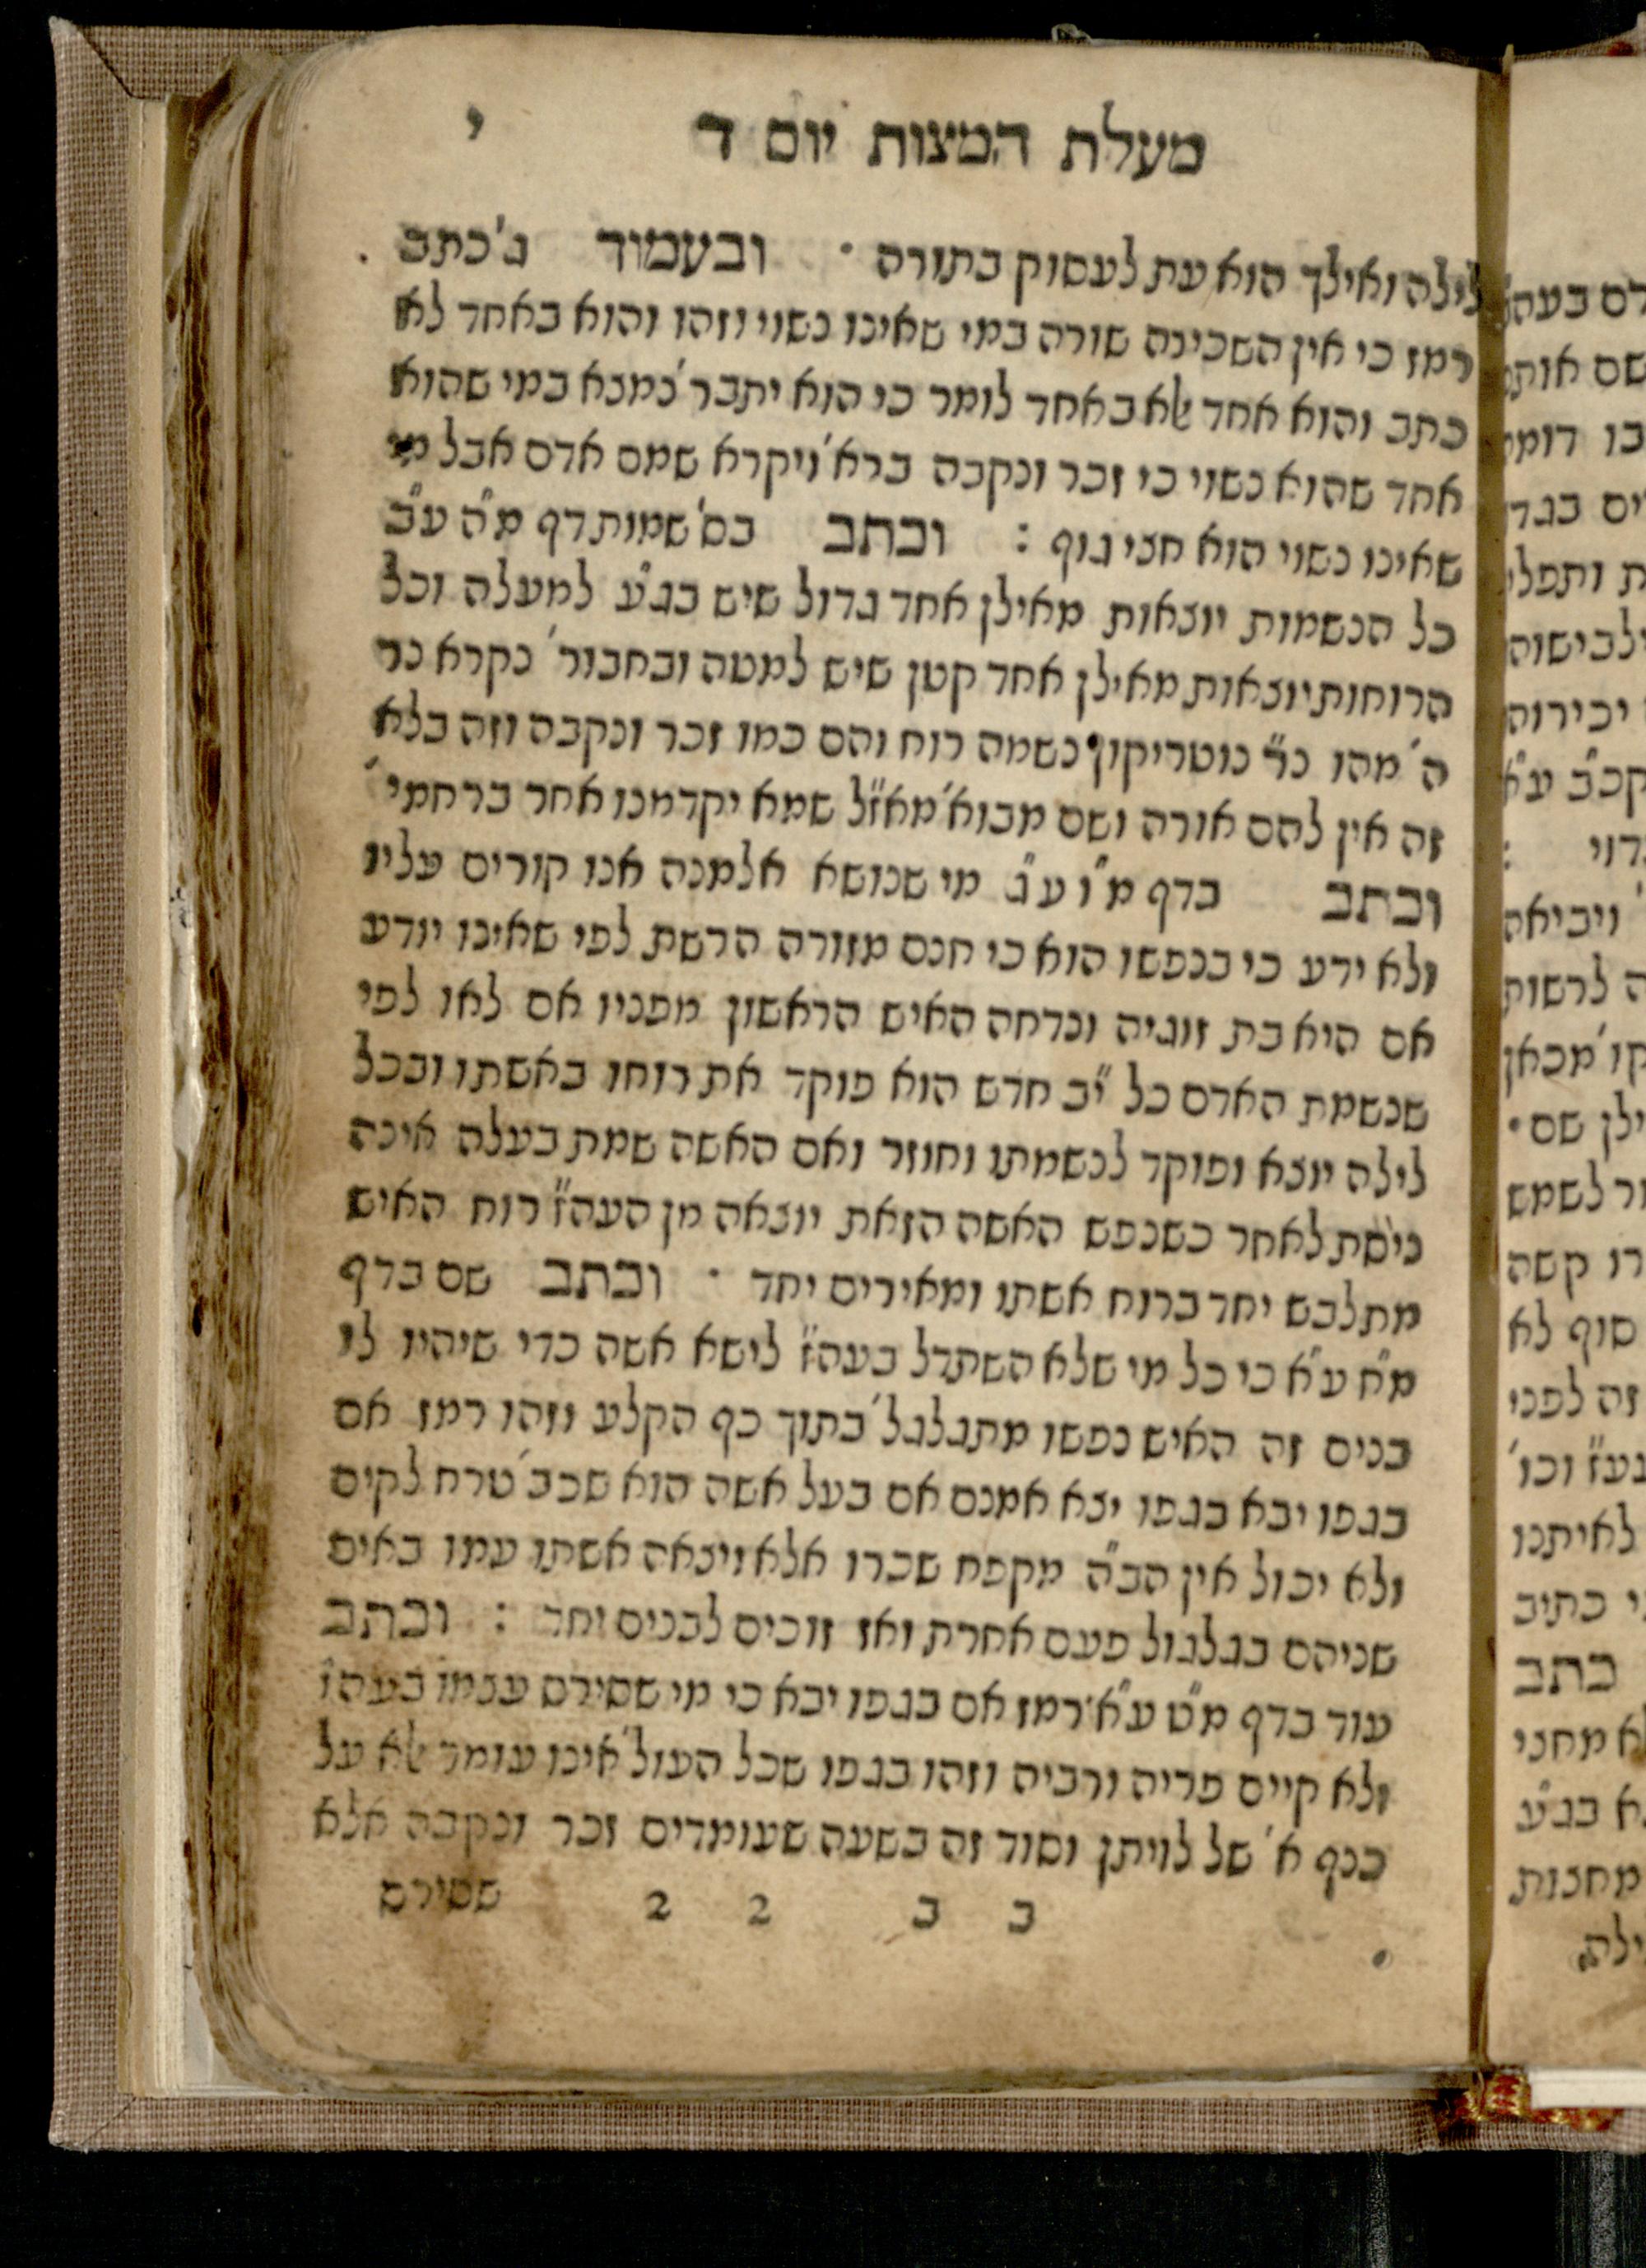 מעלת המצות יום ד י
לילה ואילך הוא עת לעסוק בתורה · ובעמוד ג'כתב
רמז כי אין השכינה שורה במי שאינו נשוי וזהו והוא באחד לא
כתב והוא אחד אלא באחד לומר כי הוא יתבר' נמצא במי שהוא
אחד שהוא נשוי כי זכר ונקבה ברא' ויקרא שמם אדם אבל מי
שאינו נשוי הוא חצי גוף : וכתב בס' שמות דף מ"ה ע"ב
כל הנשמות יוצאות מאילן אחד גדול שיש בג"ע למעלה וכל
הרוחות יוצאות מאילן אחד קטן שיש למטה ובחבור' נקרא נר
ה' מהו נ"ר נוטריקון נשמה רוח והם כמו זכר ונקבה וזה בלא
זה אין להם אורה ושם מבוא' מאז"ל שמא יקדמנו אחר ברחמי'
וכתב בדף מ"ו ע"ג מי שנושא אלמנה אנו קורים עליו
ולא ידע כי בנפשו הוא כי חנם מזורה הרשת לפי שאינו יודע
אם היא בת זוגיה ונדחה האיש הראשון מפניו אם לאו לפי
שנשמת האדם כל י"ב חדש הוא פוקד את רוחו באשתו ובכל
לילה יוצא ופוקד לנשמתו וחוזר ואם האשה שמת בעלה אינה
ניסת לאחר כשנפש האשה הזאת יוצאה מן העה"ז רוח האיש
מתלבש יחד ברוח אשתו ומאירים יחד · וכתב שם בדף
מ"ח ע"א כי כל מי שלא השתדל בעה"ז לישא אשה כדי שיהיו לו
בנים זה האיש נפשו מתגלגל' בתוך כף הקלע וזהו רמז אם
בגפו יבא בגפו יצא אמנם אם בעל אשה הוא שכב' טרח לקים
ולא יכול אין הב"ה מקפח שכרו אלא ויצאה אשתו עמו באים
שניהם בגלגול פעם אחרת ואז זוכים לבנים יחד : וכתב
עוד בדף מ"ט ע"א רמז אם בגפו יבא כי מי שסירס עצמו בעה"ז
ולא קיים פריה ורביה וזהו בגפו שכל העול' אינו עומד אלא על
כנף א' של לויתן וסוד זה בשעה שעומדים זכר ונקבה אלא
ב ב 2 2 שסירס